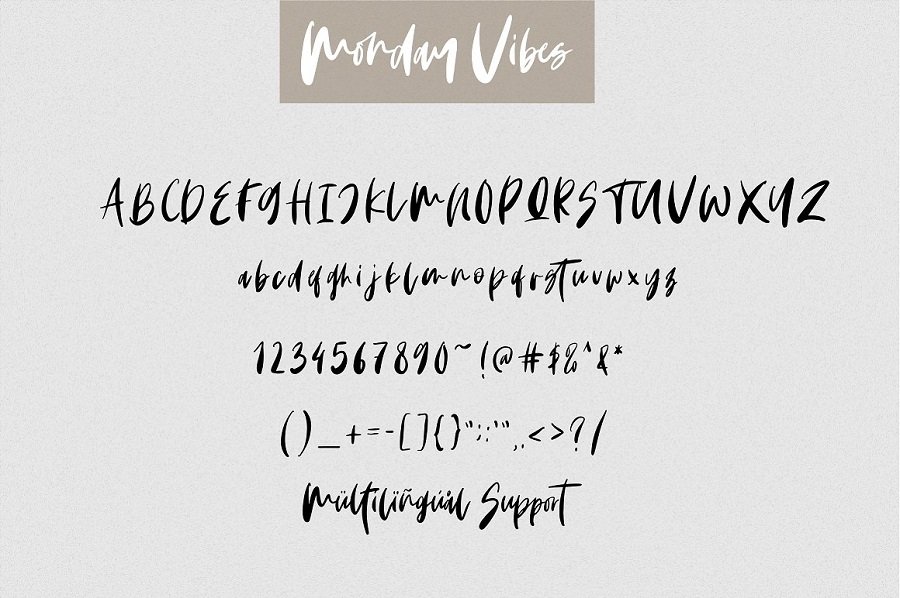 Monday Vibes
ABCDEFGHIJKLMNOPQRSTUVWXYZ
abcdefghijklmnopqrstuvwxyz
1234567890~!@#$%^&*
()_+=-[]{}":;'",.<>?/
Mültilïñgúål Support